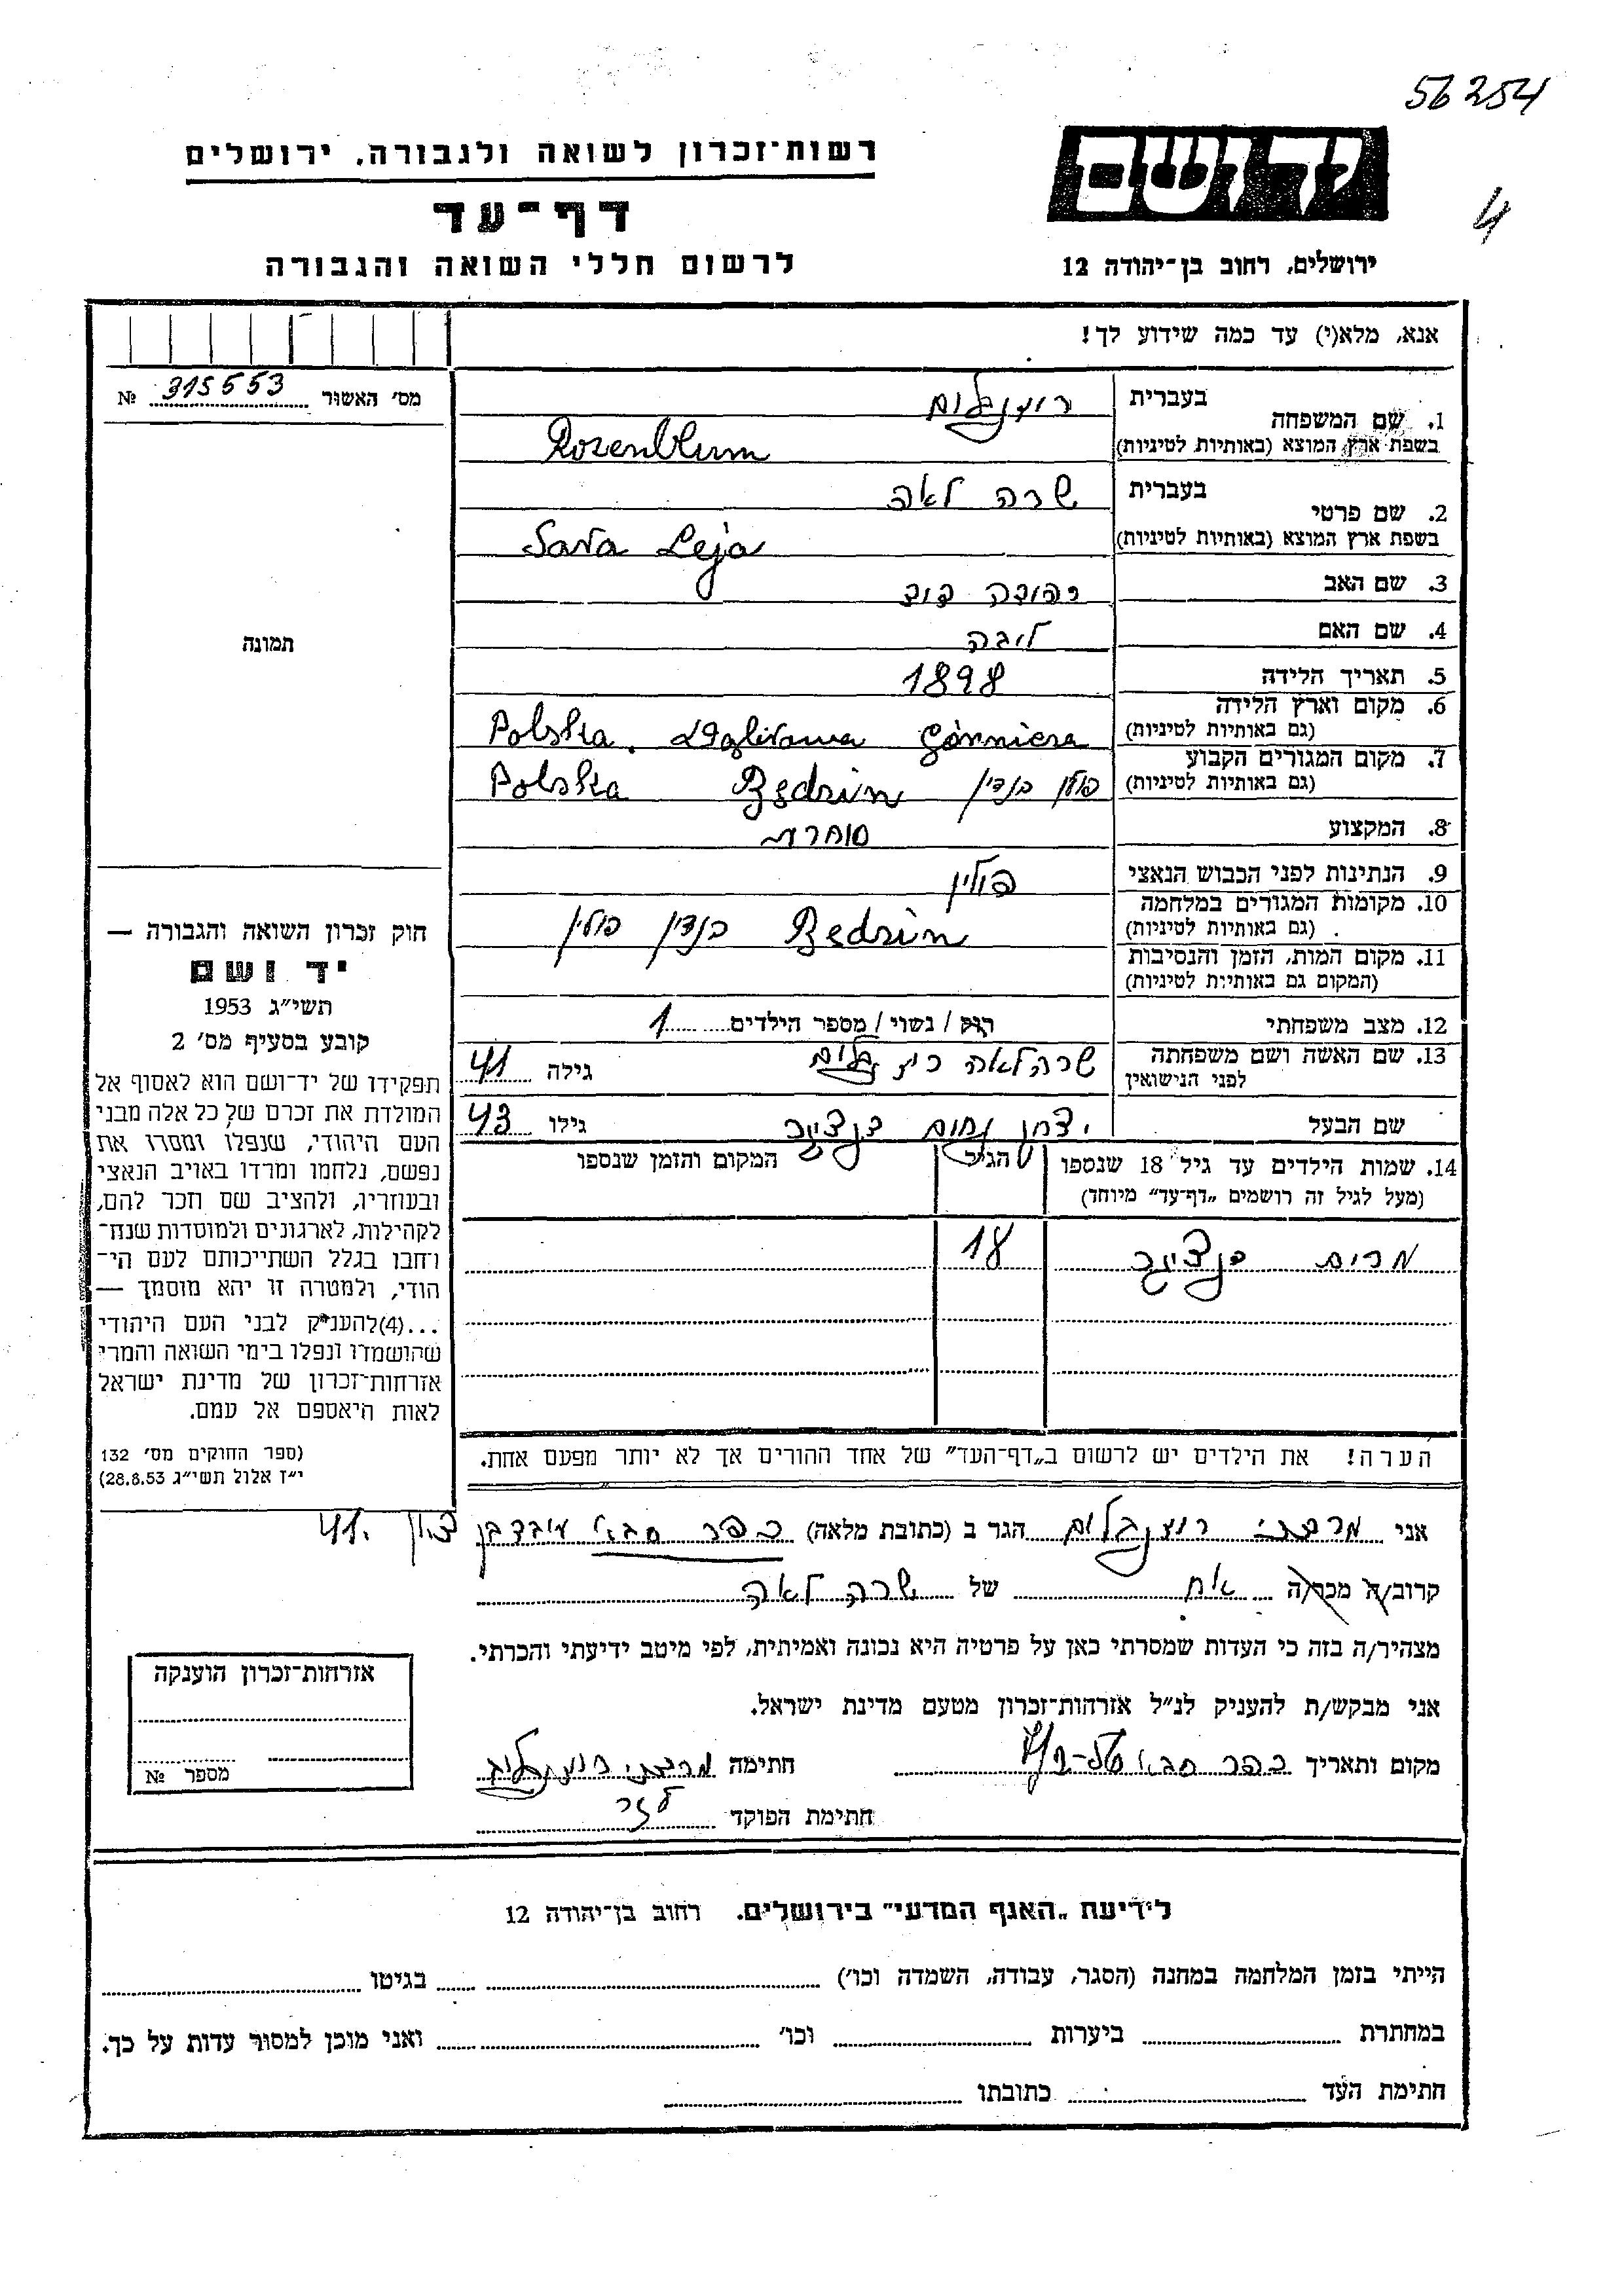 56254
רשות־זכרון לשואה ולגבורה, ירושלים
יד ושם
דף־עד
4
לרשום חללי השואה והגבורה
ירושלים, רחוב בן־יהודה 12
אנא, מלא(י) עד כמה שידוע לך!
מס׳ האשור 315553 №
1. שם המשפחה
בעברית רוזנבלום
בשפת ארץ המוצא (באותיות לטיניות) Rozenblum
2. שם פרטי
בעברית שרה לאה
בשפת ארץ המוצא (באותיות לטיניות) Sara Leja
3. שם האב יהודה דוד
4. שם האם ליבה
תמונה
5. תאריך הלידה 1898
6. מקום וארץ הלידה
(גם באותיות לטיניות) Polska. Górnicza
7. מקום המגורים הקבוע
(גם באותיות לטיניות) פולין בנדין Będzin Polska
8. המקצוע סוחרת
9. הנתינות לפני הכבוש הנאצי פולין
10. מקומות המגורים במלחמה
(גם באותיות לטיניות) Będzin בנדין פולין
11. מקום המות, הזמן והנסיבות
(המקום גם באותיות לטיניות)
12. מצב משפחתי רווק / נשוי / מספר הילדים 1
13. שם האשה ושם משפחתה
לפני הנישואין שרה לאה רוזנבלום גילה 41
שם הבעל יצחק נחום גילו 43
14. שמות הילדים עד גיל 18 שנספו
(מעל לגיל זה רושמים „דף־עד” מיוחד)
הגיל
המקום והזמן שנספו
מרים 18
הערה! את הילדים יש לרשום ב„דף־העד” של אחד ההורים אך לא יותר מפעם אחת.
חוק זכרון השואה והגבורה —
יד ושם
תשי״ג 1953
קובע בסעיף מס׳ 2
תפקידו של יד־ושם הוא לאסוף אל
המולדת את זכרם של כל אלה מבני
העם היהודי, שנפלו ומסרו את
נפשם, נלחמו ומרדו באויב הנאצי
ובעוזריו, ולהציב שם וזכר להם,
לקהילות, לארגונים ולמוסדות שנח־
רחבו בגלל השתייכותם לעם הי־
הודי, ולמטרה זו יהא מוסמך —
...(4)להעניק לבני העם היהודי
שהושמדו ונפלו בימי השואה והמרי
אזרחות־זכרון של מדינת ישראל
לאות היאספם אל עמם.
(ספר החוקים מס׳ 132
י״ז אלול תשי״ג 28.8.53)
אני מרדכי רוזנבלום הגר ב (כתובת מלאה) כפר סבא 41.
קרוב/ה מכר/ה אח של שרה לאה
מצהיר/ה בזה כי העדות שמסרתי כאן על פרטיה היא נכונה ואמיתית, לפי מיטב ידיעתי והכרתי.
אני מבקש/ת להעניק לנ״ל אזרחות־זכרון מטעם מדינת ישראל.
מקום ותאריך כפר סבא חתימה מרדכי רוזנבלום
חתימת הפוקד
אזרחות־זכרון הוענקה
מספר №
לידיעת „האגף המדעי” בירושלים. רחוב בן־יהודה 12
הייתי בזמן המלחמה במחנה (הסגר, עבודה, השמדה וכו׳) בגיטו
במחתרת ביערות וכו׳ ואני מוכן למסור עדות על כך.
חתימת העד כתובתו